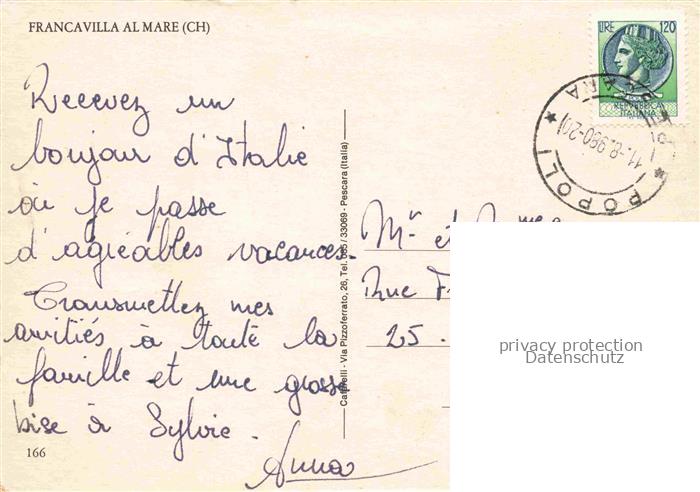 FRANCAVILLA AL MARE (CH)
LIRE 120
REPUBBLICA
ITALIANA
POPOLI
11.-8.980-20
Recevez un
bonjour d'Italie
où je passe
d'agréables vacances.
Transmettez mes
amitiés à toute la
famille et une grosse
bise à Sylvie.
Anna
166
Via Pizzoferrato, 26, Tel. 085 / 33069 - Pescara (Italia)
Mr et
Rue
25.
privacy protection
Datenschutz